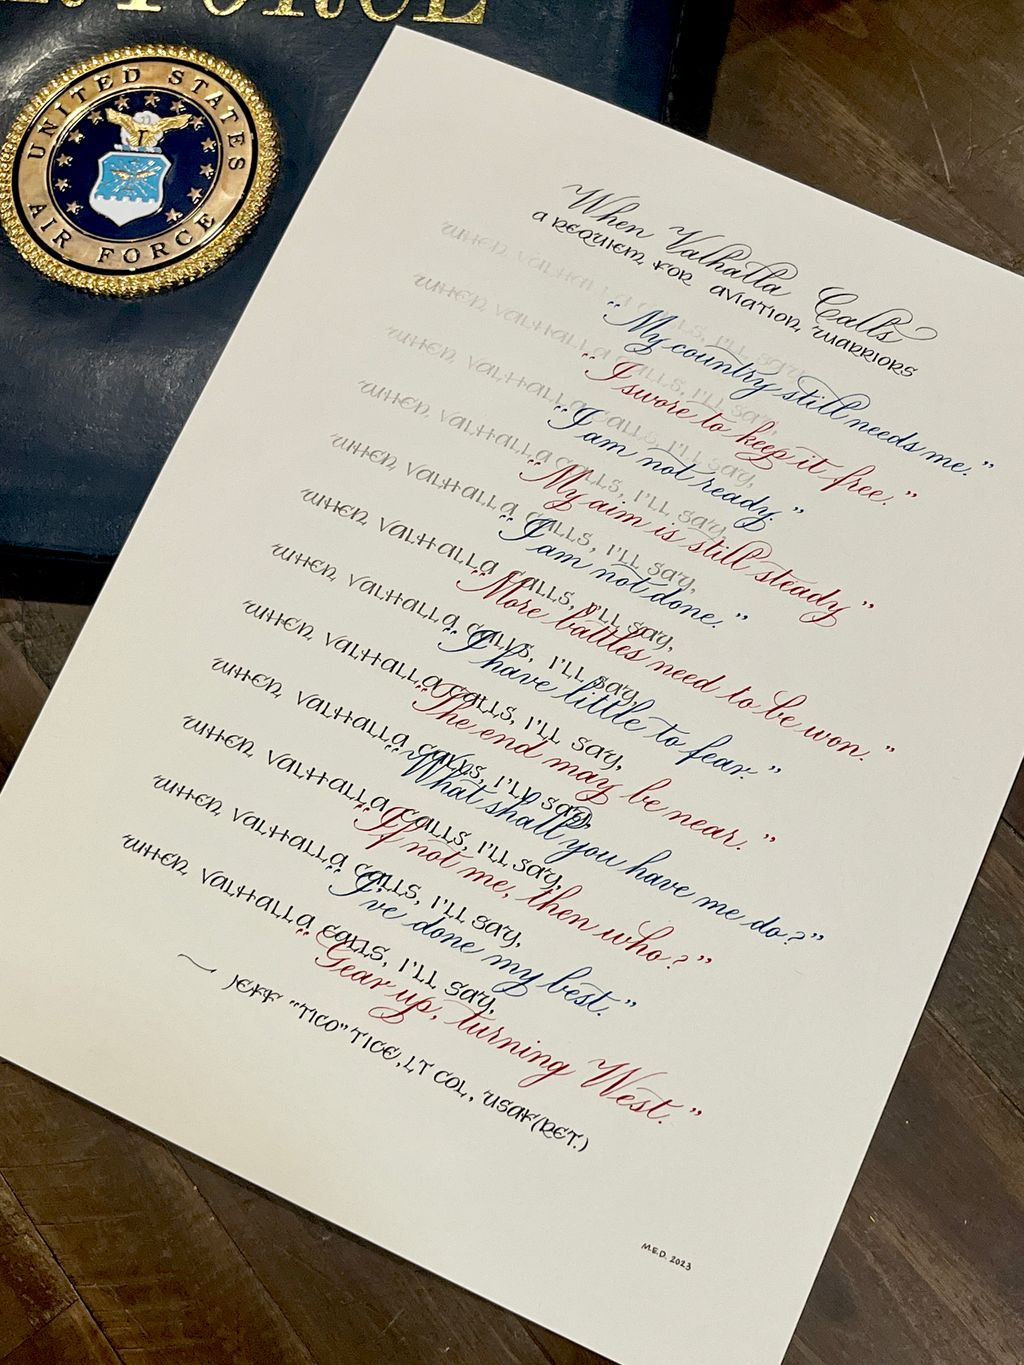 FORCE
UNITED STATES
AIR FORCE
When Valhalla Calls
A REQUIEM FOR AVIATION WARRIORS
WHEN VALHALLA CALLS, I'LL SAY,
"My country still needs me."
WHEN VALHALLA CALLS, I'LL SAY,
"I swore to keep it free."
WHEN VALHALLA CALLS, I'LL SAY,
"I am not ready."
WHEN VALHALLA CALLS, I'LL SAY,
"My aim is still steady"
WHEN VALHALLA CALLS, I'LL SAY,
"I am not done."
WHEN VALHALLA CALLS, I'LL SAY,
"More battles need to be won."
WHEN VALHALLA CALLS, I'LL SAY,
"I have little to fear."
WHEN VALHALLA CALLS, I'LL SAY,
"The end may be near."
WHEN VALHALLA CALLS, I'LL SAY,
"What shall you have me do?"
WHEN VALHALLA CALLS, I'LL SAY,
"If not me, then who?"
WHEN VALHALLA CALLS, I'LL SAY,
"I've done my best."
WHEN VALHALLA CALLS, I'LL SAY,
"Gear up, turning West."
~ JEFF "TICO" TICE, LT COL, USAF (RET.)
M.E.D. 2023